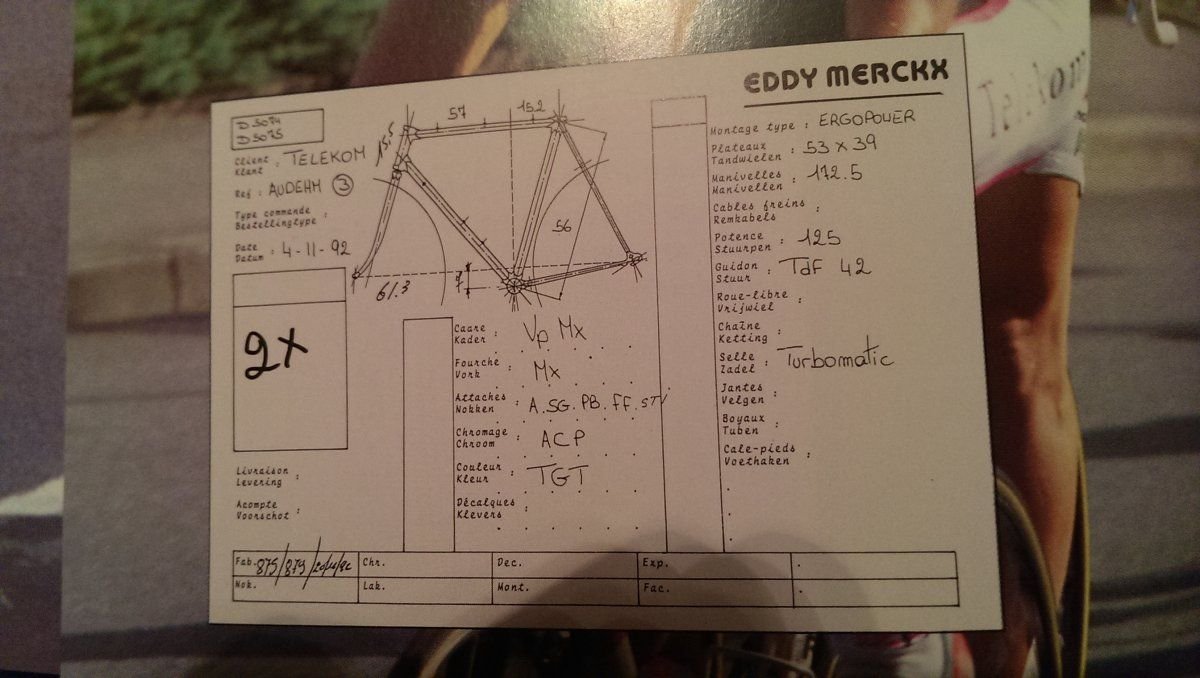 EDDY MERCKX
Telekom
D 5074
D 5075
Client
Klant : TELEKOM
Ref : AUDEHM 3
Type commande
Bestellingtype :
Date
Datum : 4-11-92
2x
Livraison
Levering :
Acompte
Voorschot :
57
15.2
15.5
56
61.3
7
Cadre
Kader : Vp Mx
Fourche
Vork : Mx
Attaches
Nokken : A.SG.PB.FF.ST
Chromage
Chroom : ACP
Couleur
Kleur : TGT
Décalques
Klevers :
Montage type : ERGOPOWER
Plateaux
Tandwielen : 53 x 39
Manivelles
Manivellen : 172.5
Cables freins
Remkabels :
Potence
Stuurpen : 125
Guidon
Stuur : TdF 42
Roue-libre
Vrijwiel :
Chaîne
Ketting :
Selle
Zadel : Turbomatic
Jantes
Velgen :
Boyaux
Tuben :
Cale-pieds
Voethaken :
Fab. 875/879 Chr. Dec. Exp.
Nok. Lak. Mont. Fac.